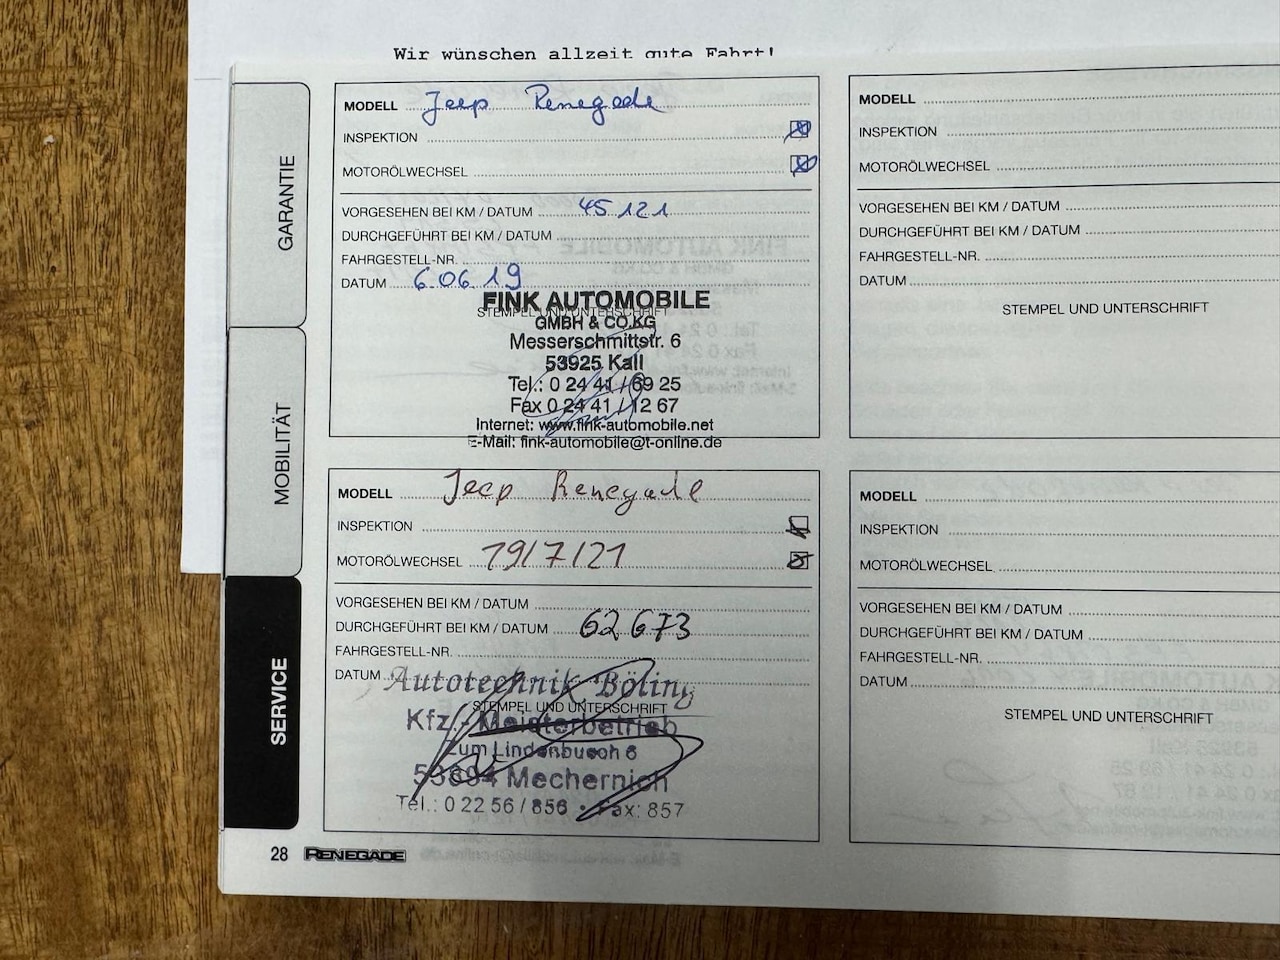 Wir wünschen allzeit gute Fahrt!
GARANTIE
MOBILITÄT
SERVICE
MODELL Jeep Renegade
INSPEKTION
MOTORÖLWECHSEL
VORGESEHEN BEI KM / DATUM 45 121
DURCHGEFÜHRT BEI KM / DATUM
FAHRGESTELL-NR.
DATUM 6.06.19
STEMPEL UND UNTERSCHRIFT
FINK AUTOMOBILE
GMBH & CO.KG
Messerschmittstr. 6
53925 Kall
Tel.: 0 24 41 / 69 25
Fax 0 24 41 / 12 67
Internet: www.fink-automobile.net
E-Mail: fink-automobile@t-online.de
MODELL Jeep Renegade
INSPEKTION
MOTORÖLWECHSEL 19/7/21
VORGESEHEN BEI KM / DATUM
DURCHGEFÜHRT BEI KM / DATUM 62 673
FAHRGESTELL-NR.
DATUM
Autotechnik Böling
STEMPEL UND UNTERSCHRIFT
Kfz.-Meisterbetrieb
Zum Lindenbusch 6
53894 Mechernich
Tel.: 0 22 56 / 856 • Fax: 857
MODELL
INSPEKTION
MOTORÖLWECHSEL
VORGESEHEN BEI KM / DATUM
DURCHGEFÜHRT BEI KM / DATUM
FAHRGESTELL-NR.
DATUM
STEMPEL UND UNTERSCHRIFT
MODELL
INSPEKTION
MOTORÖLWECHSEL
VORGESEHEN BEI KM / DATUM
DURCHGEFÜHRT BEI KM / DATUM
FAHRGESTELL-NR.
DATUM
STEMPEL UND UNTERSCHRIFT
28 RENEGADE